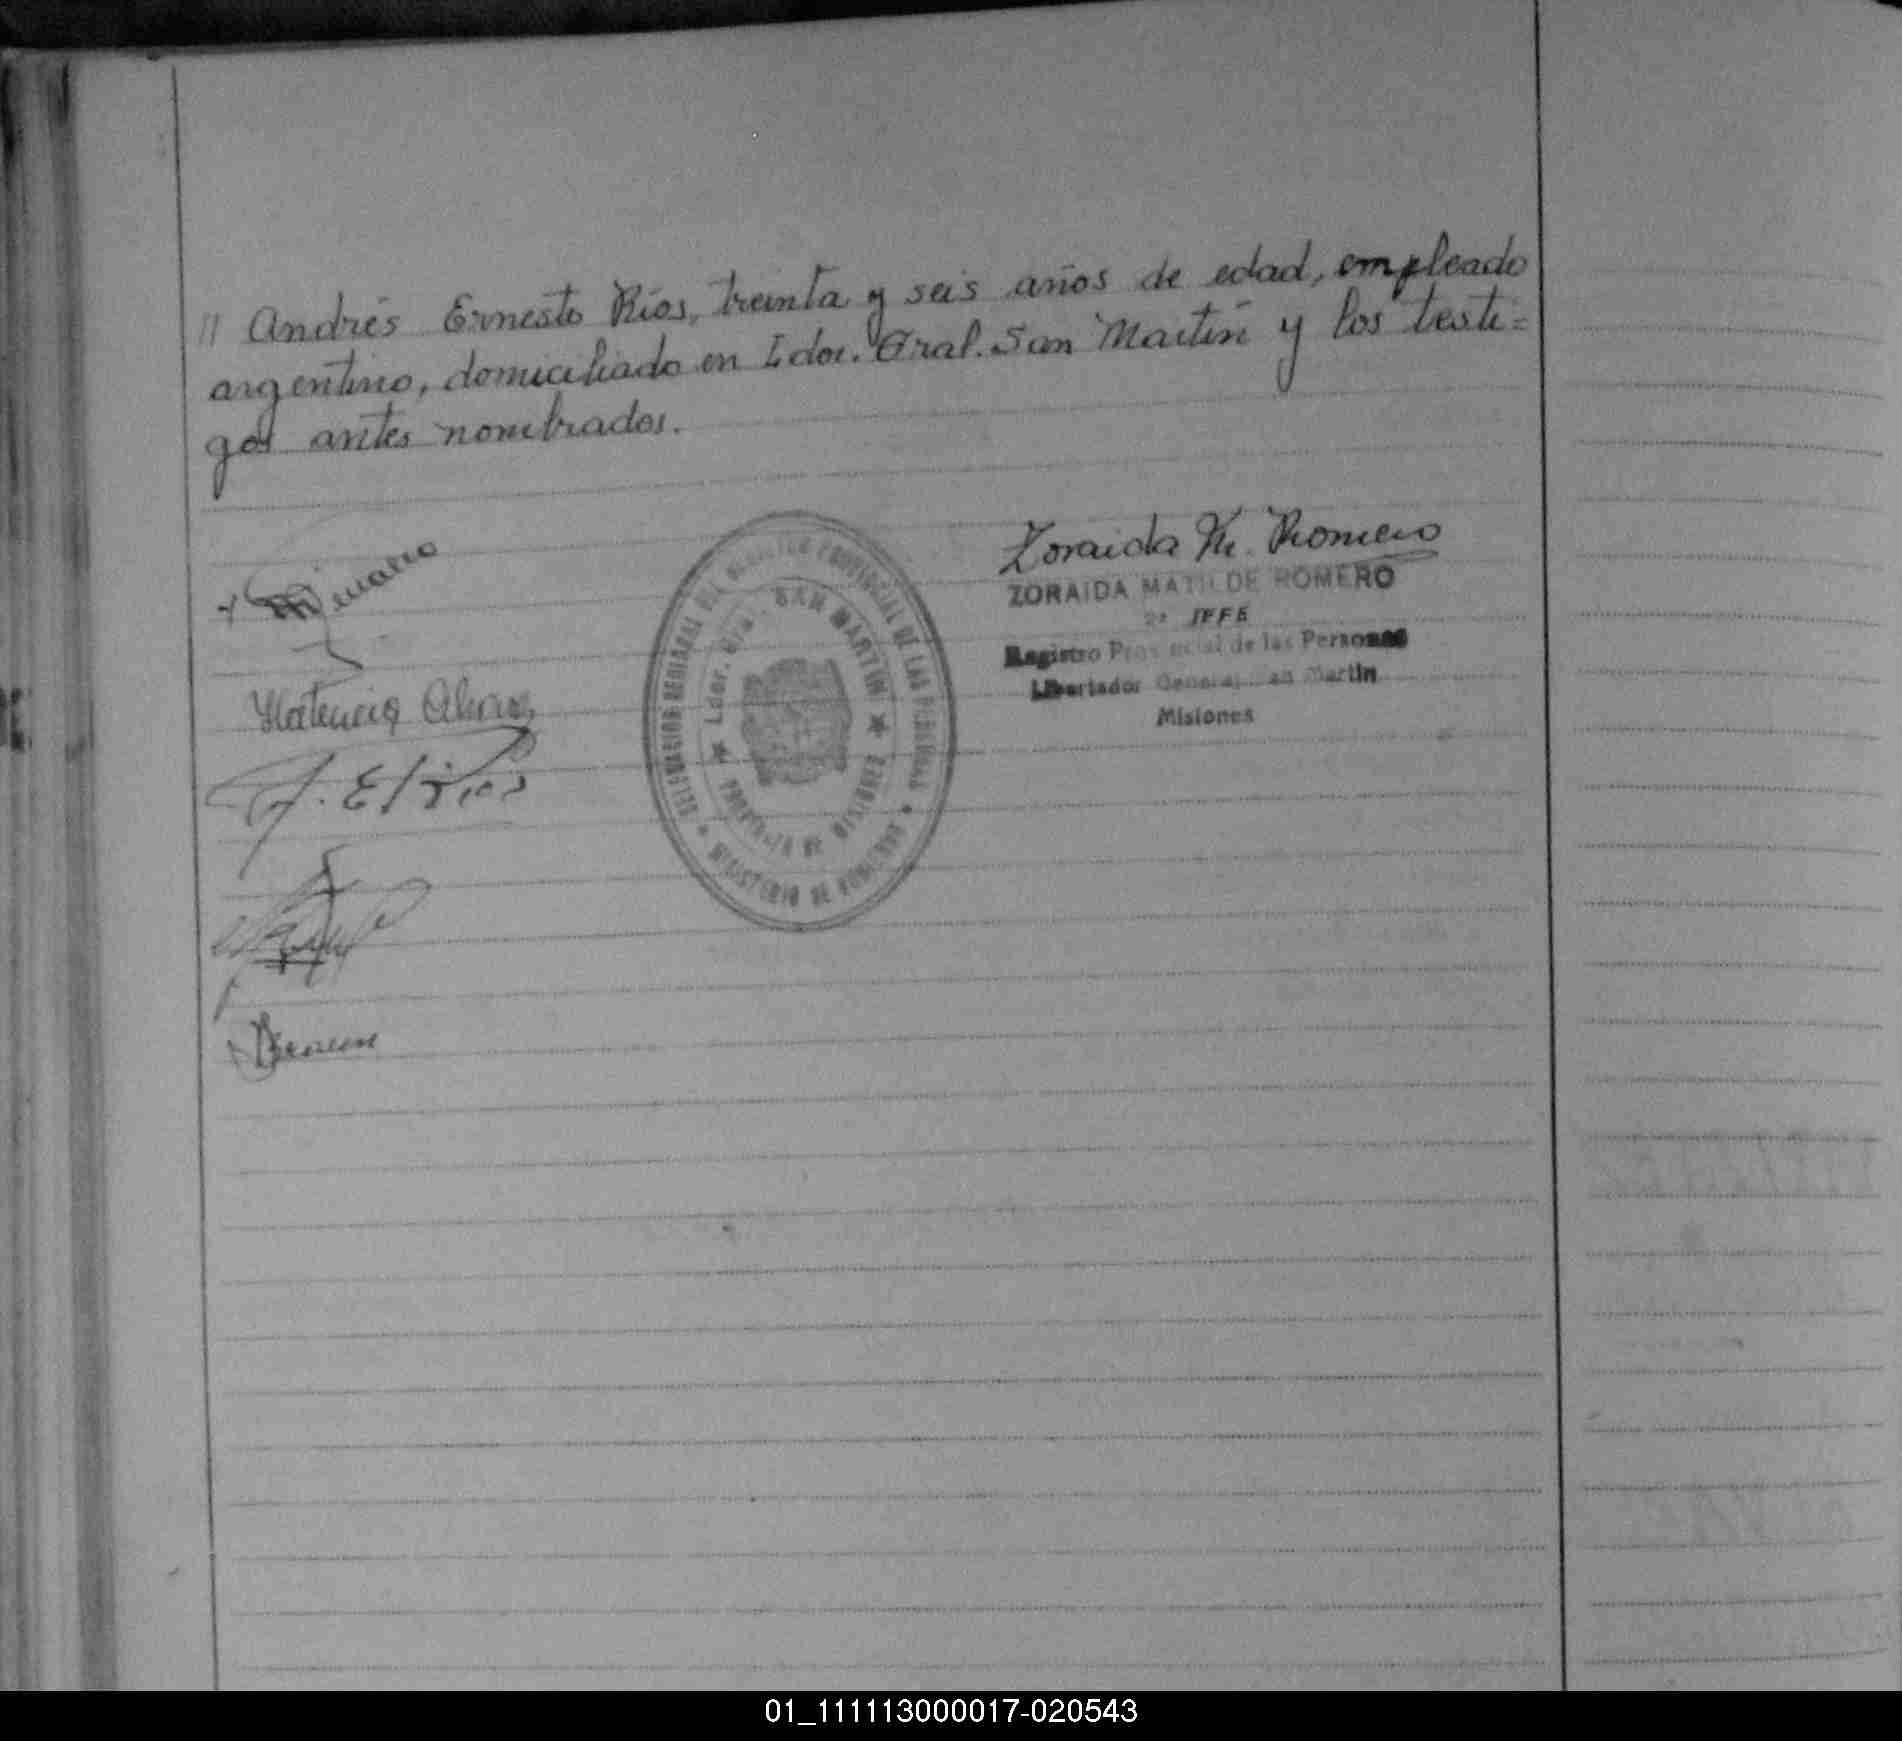 // Andrés Ernesto Ríos, treinta y seis años de edad, empleado
argentino, domiciliado en Ldor. Gral. San Martín y los testi=
gos antes nombrados.
Zoraida M. Romero
ZORAIDA MATILDE ROMERO
JEFE
Registro Provincial de las Personas
Libertador General San Martin
Misiones
DELEGACION REGIONAL DEL REGISTRO PROVINCIAL DE LAS PERSONAS
MINISTERIO DE GOBIERNO
Ldor. Gral. SAN MARTIN
PROVINCIA DE MISIONES
01_111113000017-020543